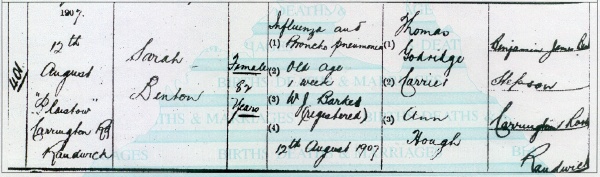 1907.
401
12th
August
"Plaistow"
Carrington Rd
Randwick
Sarah
Benton
Female
82
Years
Influenza and
(1) Broncho pneumonia
(2) Old age
1 week
(3) W J Barkes
(registered)
(4)
12th August 1907
Thomas
(1)
Godridge
(2) Carrier
(3) Ann
Hough
Benjamin James
Stepson
Carrington Road
Randwick
BIRTHS DEATHS & MARRIAGES